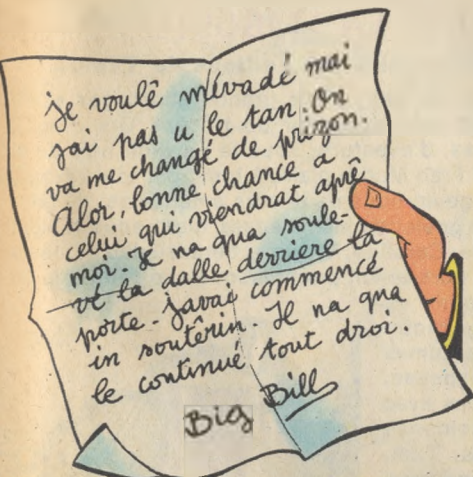 je voulê mévadé mai
jai pas u le tan. On
va me changé de prizon.
Alor, bonne chance a
celui qui viendrat aprê
moi. Il na qua soule-
vé la dalle derriere la
porte. javai commencé
in soutêrin. Il na qua
le continué tout droi.
Big Bill